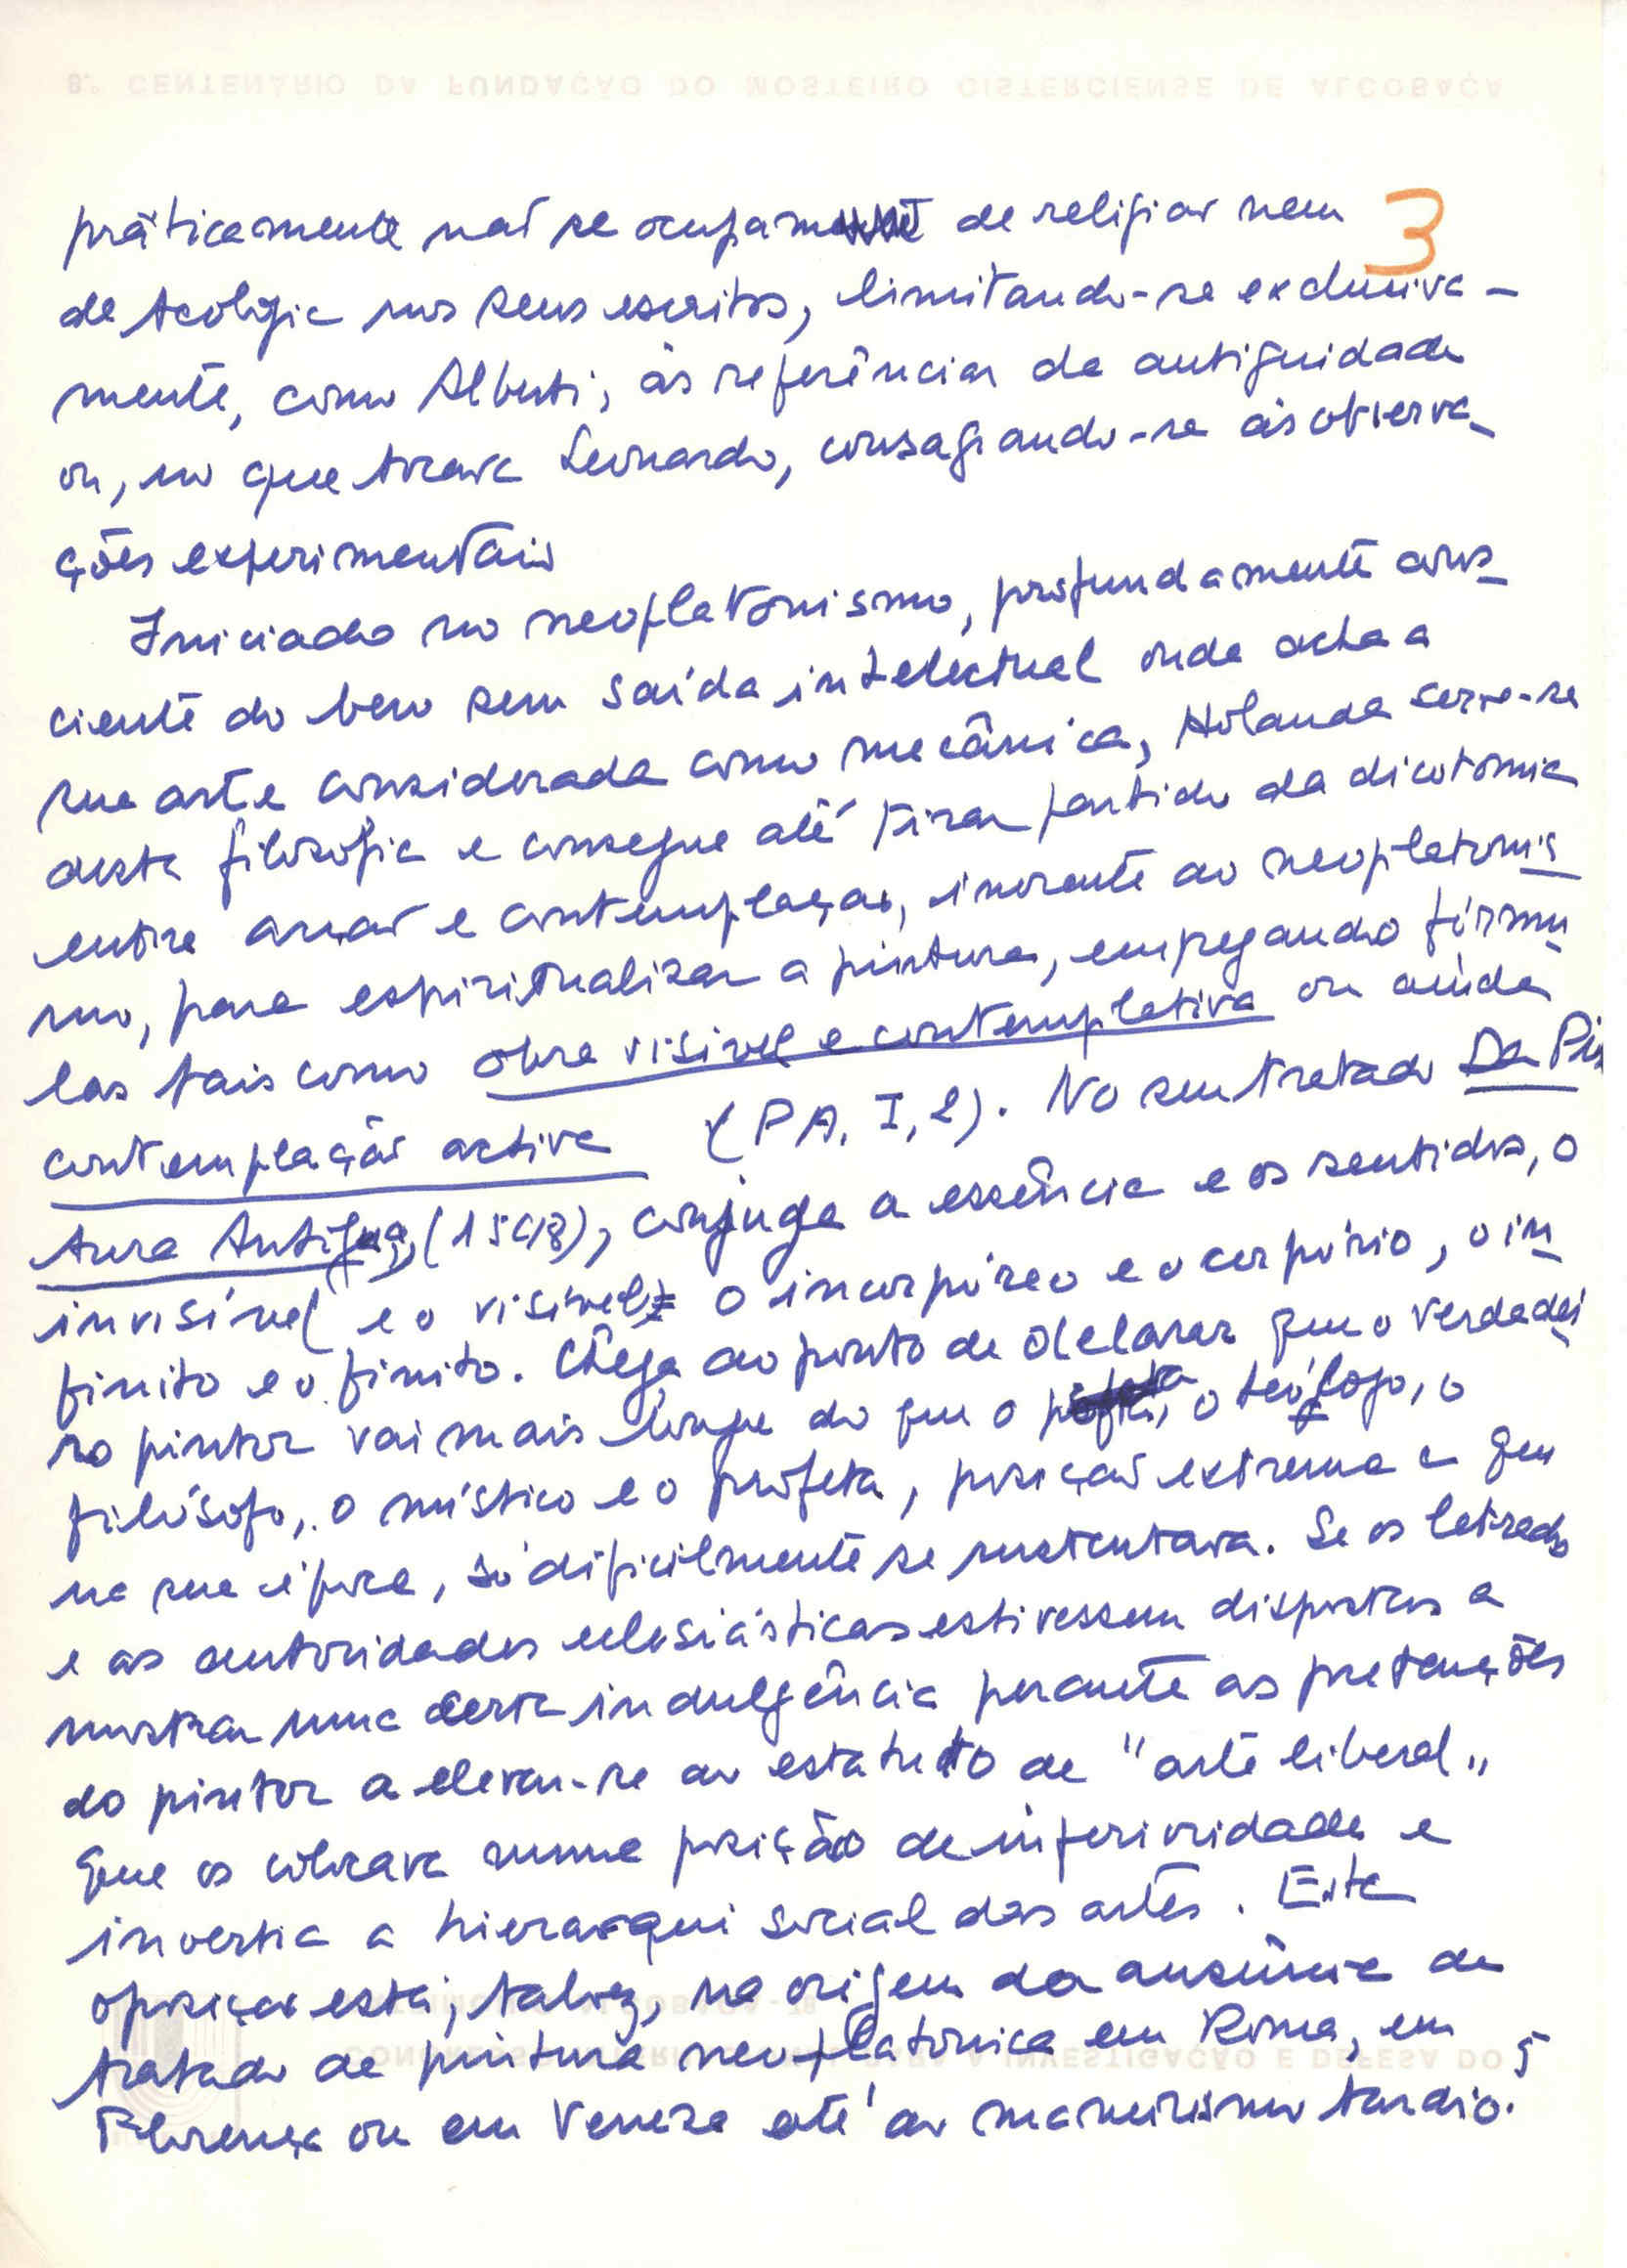 8.º CENTENÁRIO DA FUNDAÇÃO DO MOSTEIRO CISTERCIENSE DE ALCOBAÇA
3
pràticamente não se ocupam de religião nem
de teologia nos seus escritos, limitando-se exclusiva-
mente, como Alberti, às referências da antiguidade
ou, no que tocava Leonardo, consagrando-se às observa-
ções experimentais
Iniciado no neoplatonismo, profundamente cons-
ciente do beco sem saída intelectual onde acha a
sua arte considerada como mecânica, Holanda serve-se
desta filosofia e consegue até tirar partido da dicotomia
entre acção e contemplação, inerente ao neoplatonis
mo, para espiritualizar a pintura, empregando fórmu
las tais como obra visível e contemplativa ou ainda
contemplação activa (PA, I, 2). No seu tratado Da Pin
tura Antigua, (1548), conjuga a essência e os sentidos, o
invisível e o visível, o incorpóreo e o corpório, o in
finito e o finito. Chega ao ponto de declarar que o verdadei
ro pintor vai mais longe do que o poeta, o teólogo, o
filósofo, o místico e o profeta, posição extrema e que
na sua época, só dificilmente se sustentava. Se os letrados
e as autoridades eclesiásticas estivessem dispostas a
mostrar uma certa indulgência perante as pretenções
do pintor a elevar-se ao estatuto de "arte liberal"
que os colocava numa posição de inferioridade e
invertia a hierarqui social das artes. Esta
oposição está, talvez, na origem da ausência de
tratado de pintura neoplatónica em Roma, em
Florença ou em Veneza até ao maneirismo tardio.5
CONGRESSO INTERNACIONAL PARA A INVESTIGAÇÃO E DEFESA DO